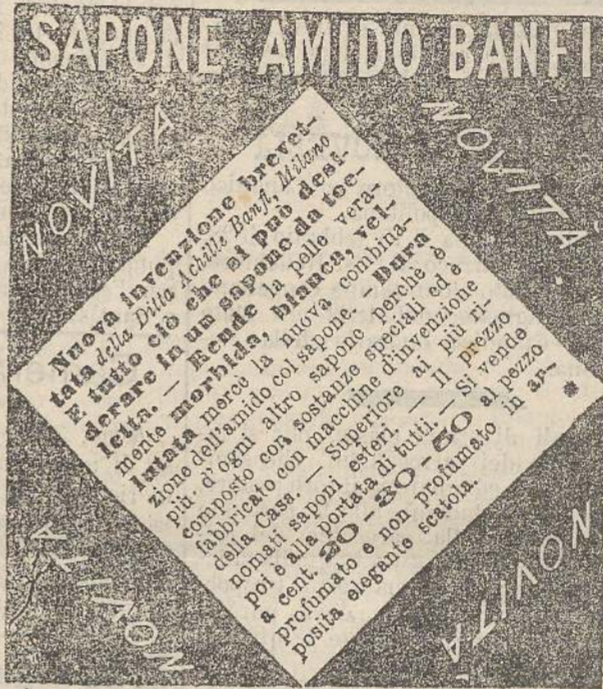 SAPONE AMIDO BANFI
NOVITÀ
NOVITÀ
Nuova invenzione brevet-
tata della Ditta Achille Banfi, Milano
È tutto ciò che si può desi-
derare in un sapone da toe-
letta. — Rende la pelle vera-
mente morbida, bianca, vel-
lutata merce la nuova combina-
zione dell'amido col sapone. — Dura
più d'ogni altro sapone perchè è
composto con sostanze speciali ed è
fabbricato con macchine d'invenzione
della Casa. — Superiore ai più ri-
nomati saponi esteri. — Il prezzo
poi è alla portata di tutti. — Si vende
a cent. 20-30-50 al pezzo
profumato e non profumato in ap-
posita elegante scatola. *
NOVITÀ
NOVITÀ